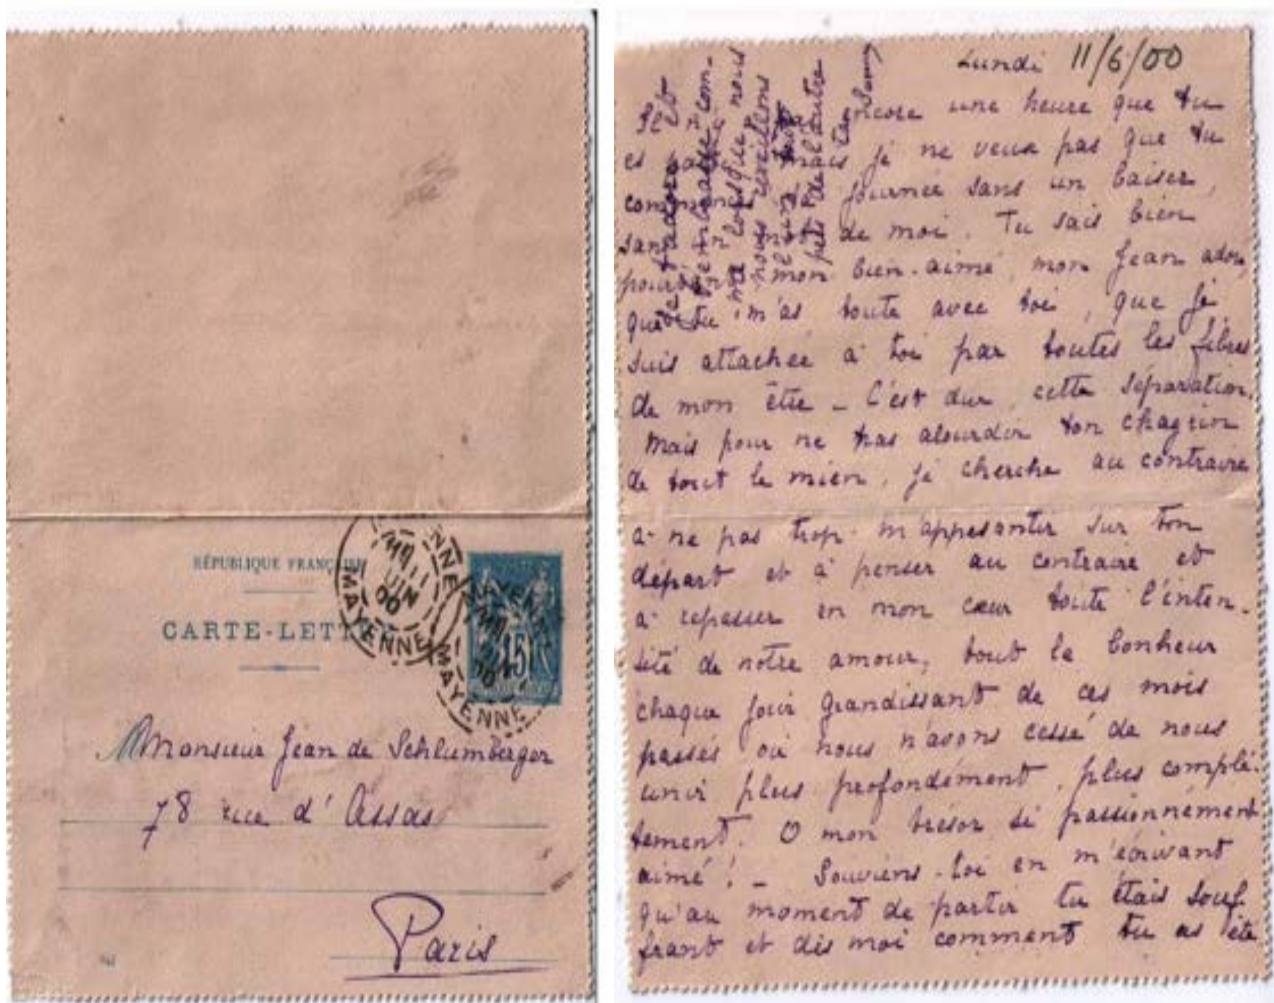 RÉPUBLIQUE FRANÇAISE
CARTE-LETTRE
MAYENNE
11
JUIN
00
MAYENNE
15
Monsieur Jean de Schlumberger
78 rue d'Assas
Paris
Lundi 11/6/00
Il n'y a pas encore une heure que tu
es mais je ne veux pas que tu
journée sans un baiser,
sans de moi. Tu sais bien
mon bien-aimé, mon Jean adoré
que tu m'as toute avec toi, que je
suis attachée à toi par toutes les fibres
de mon être – C'est dur, cette séparation.
Mais pour ne pas alourdir ton chagrin
de tout le mien, je cherche au contraire
à ne pas trop m'appesantir sur ton
départ et à penser au contraire et
à repasser en mon cœur toute l'inten-
sité de notre amour, tout le bonheur
chaque jour grandissant de ces mois
passés où nous n'avons cessé de nous
unir plus profondément, plus complè-
tement. O mon trésor si passionnément
aimé! – Souviens-toi en m'écrivant
qu'au moment de partir tu étais souf
frant et dis moi comment tu as été
Je t'adore et
t'embrasse com-
me lorsque nous
nous réveillons
l'un
près de l'autre
ta Suzy